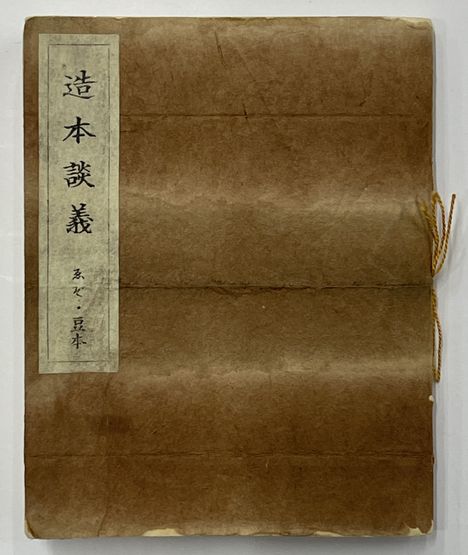 造本談義
ゑぞ・豆本